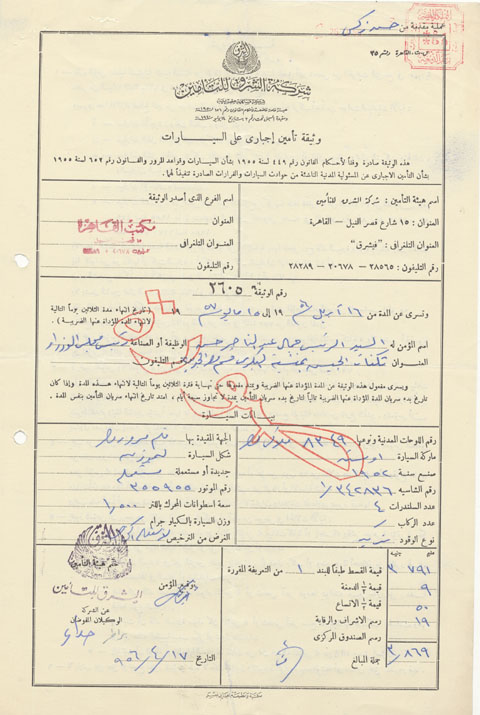 عملية مقدمة من
س.ت. القاهرة رقم ٣٥
شركة الشرق للتأمين
وثيقة تأمين إجبارى على السيارات
هذه الوثيقة صادرة وفقاً لأحكام القانون رقم ٤٤٩ لسنة ١٩٥٥ بشأن السيارات وقواعد المرور والقانون رقم ٦٥٢ لسنة ١٩٥٥
بشأن التأمين الاجبارى عن المسئولية المدنية الناشئة من حوادث السيارات والقرارات الصادرة تنفيذاً لهما.
هيئة التأمين : شركة الشرق للتأمين
العنوان : ١٥ شارع قصر النيل - القاهرة
العنوان التلغرافى : «فيشرق»
رقم التليفون : ٢٨٥٦٥ - ٢٠٦٧٨ - ٢٨٢٨٩
اسم الفرع الذى أصدر الوثيقة
العنوان
العنوان التلغرافى
رقم التليفون
مكتب القاهرة
رقم الوثيقة ٢٦٠٥
وتسرى عن المدة من ١٦ أبريل ١٩٥٦ إلى ١٥ مايو ١٩٥٧ (تاريخ انتهاء مدة الثلاثين يوماً التالية
لانتهاء المدة المؤداة عنها الضريبة)
اسم المؤمن له السيد الرئيس جمال عبد الناصر حسين الوظيفة أو الصناعة رئيس مجلس الوزراء
العنوان ثكنات الجيش بمنشية البكرى قسم مصر الجديدة رقم التليفون
ويسرى مفعول هذه الوثيقة عن المدة المؤداة عنها الضريبة وتمتد مفعولها حتى نهاية فترة الثلاثين يوماً التالية لانتهاء هذه المدة وإذا كان
تاريخ بدء سريان المدة المؤداة عنها الضريبة تالياً لتاريخ بدء سريان التأمين بمدة لا تجاوز سبعة أيام، امتد تاريخ انتهاء سريان التأمين بنفس المدة.
بيانات السيارة
رقم اللوحات المعدنية ونوعها ٨٣٠٤٩ ملاكى مصر
ماركة السيارة أوستن
صنع سنة ١٩٥٢
رقم الشاسيه ١/٣٤٢٨٣٦
عدد السلندرات ٤
عدد الركاب
نوع الوقود بنزين
الجهة المقيدة بها قلم مرور مصر
شكل السيارة
جديدة أو مستعملة مستعملة
رقم الموتور ٣٥٥٩٥٥
سعة اسطوانات المحرك باللتر ١٫٥٠٠
وزن السيارة بالكيلو جرام
الغرض من الترخيص
مليم جنيه
٣ ٧٩١ قيمة القسط طبقاً للبند ١ من التعريفة المقررة
٩ قيمة ½ الدمغة
٥٠ قيمة ½ الاتساع
١٩ رسم الاشراف والرقابة
رسم الصندوق المركزى
٣/٨٦٩ جملة المبالغ
توقيع المؤمن
ختم هيئة التأمين
الشرق للتأمين
عن الشركة
الوكيلان المفوضان
التاريخ ١٧/٤/٩٥٦